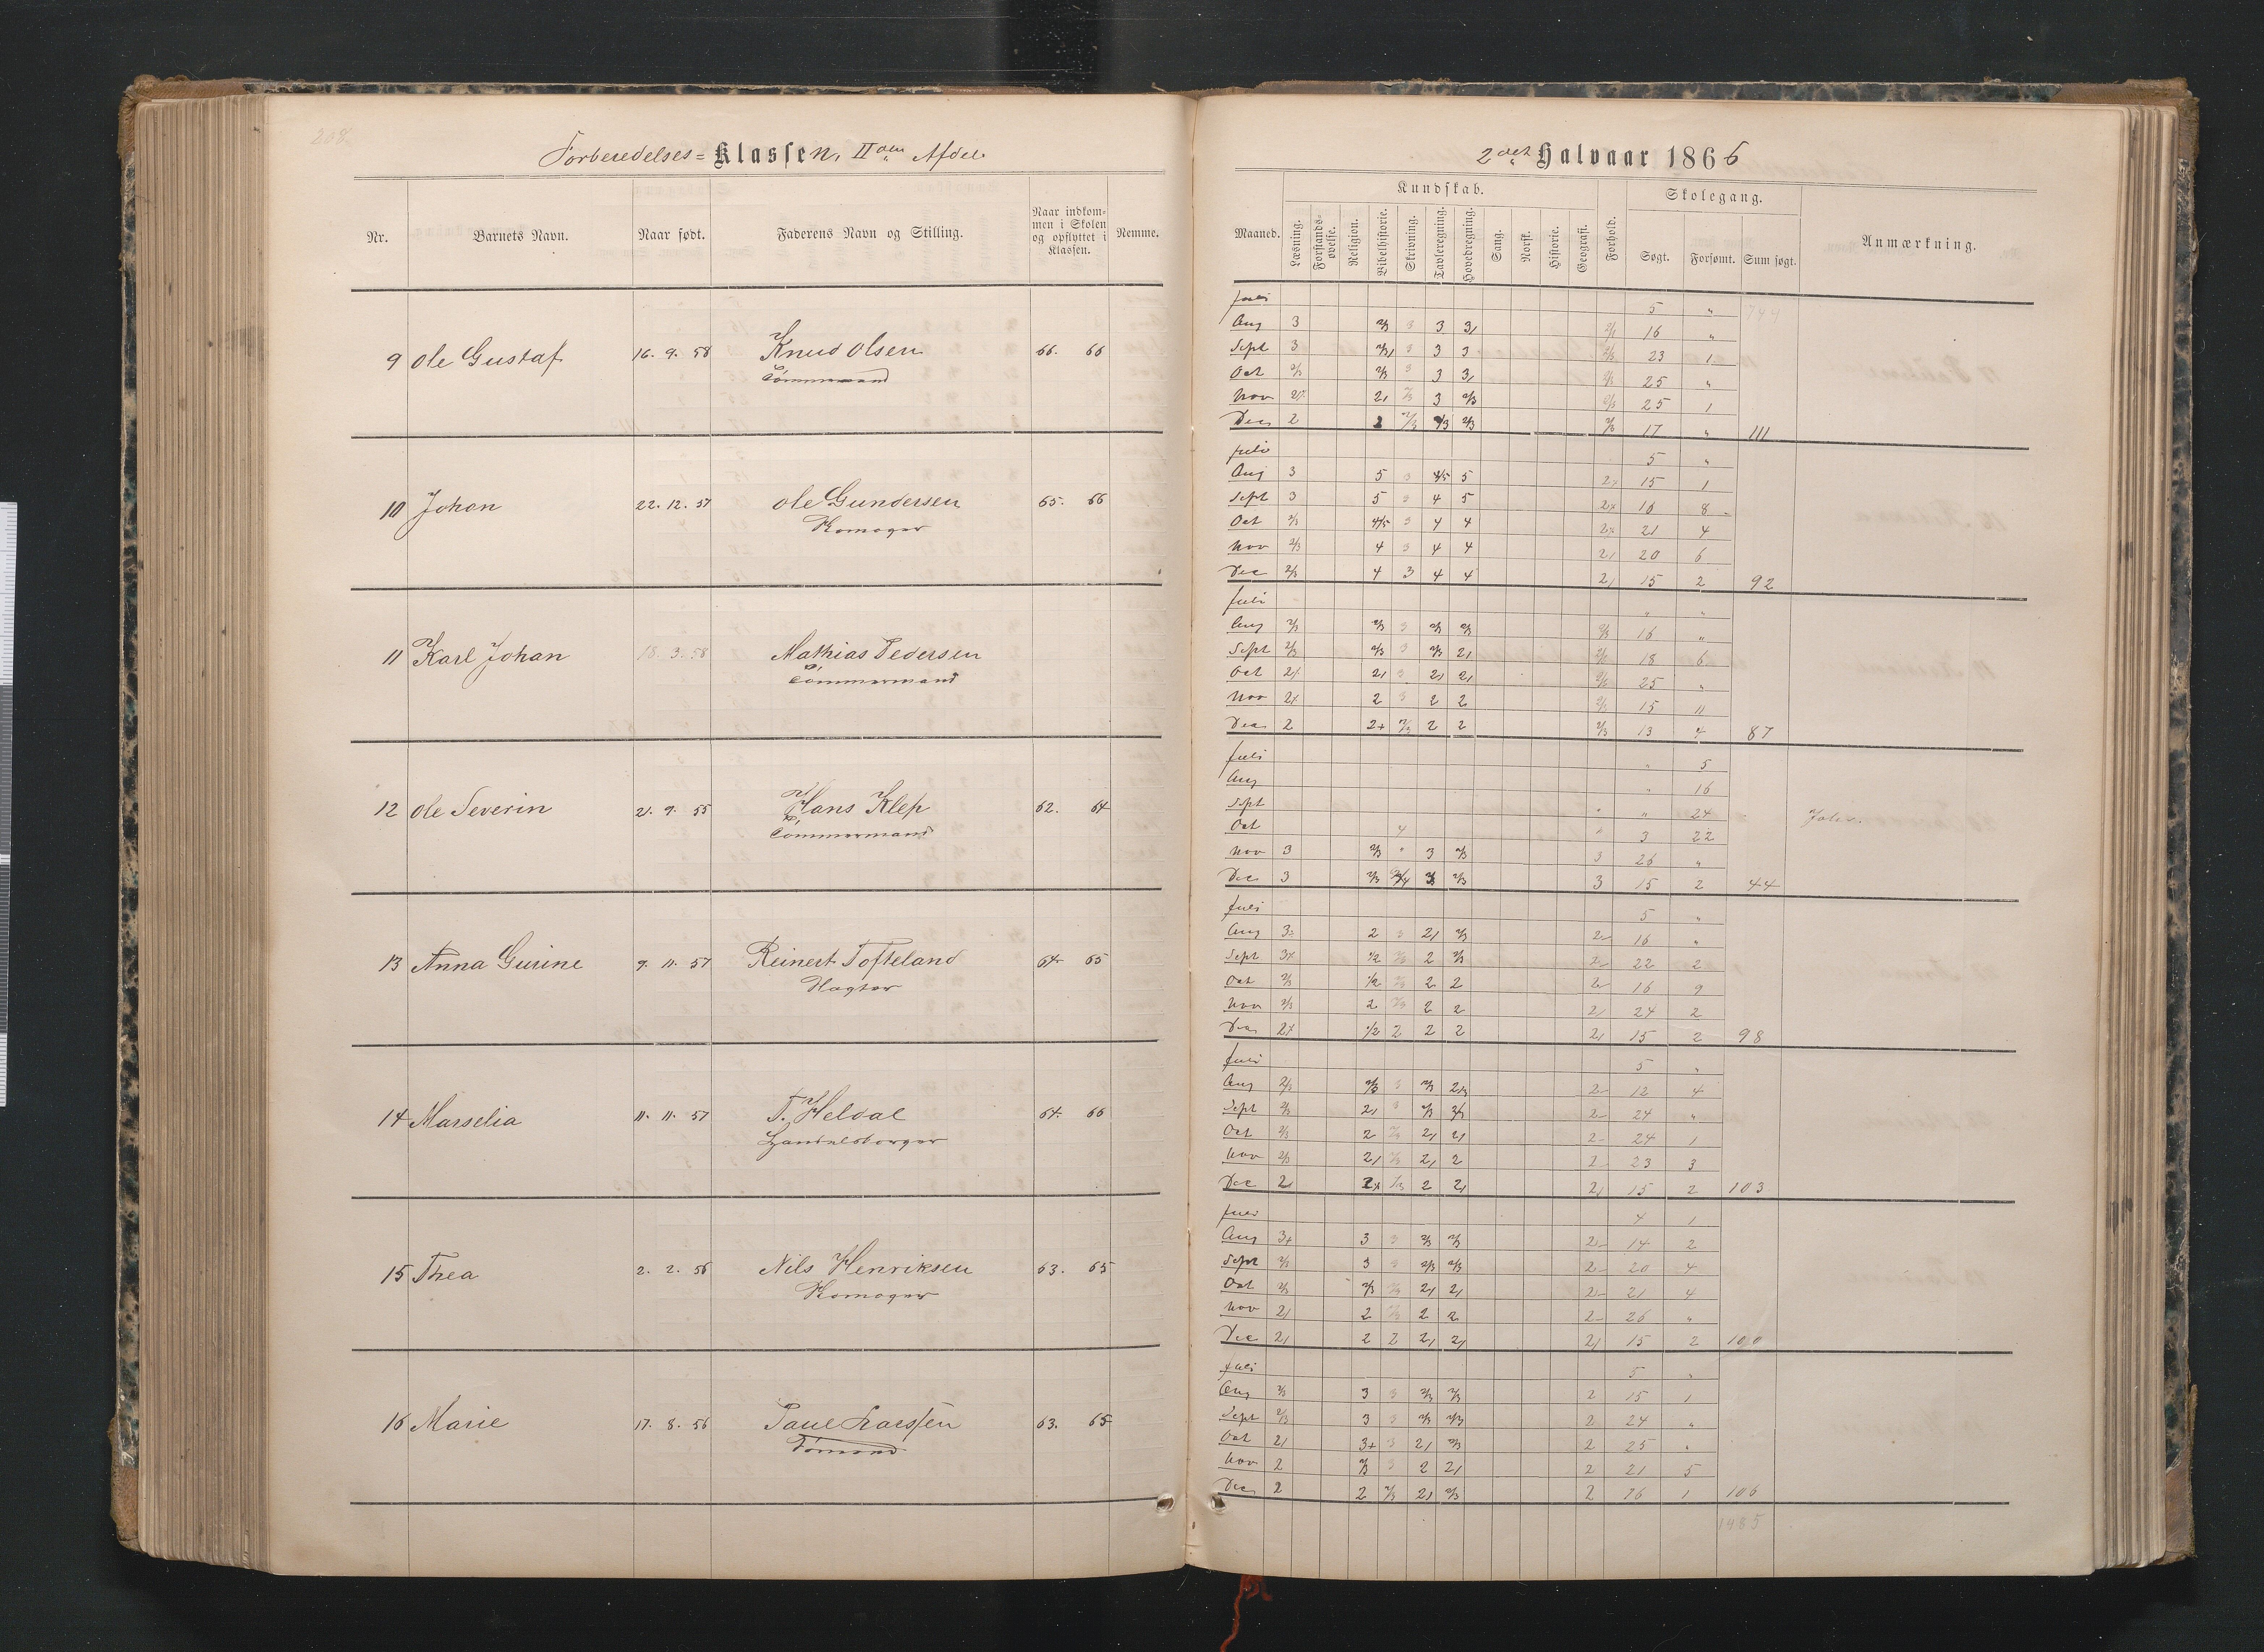 208
Forberedelses= Klassen, II den Afdel.
Nr. Barnets Navn. Naar født. Faderens Navn og Stilling. Naar indkommen i Skolen og opflyttet i Klassen. Nemme.
9 Ole Gustaf 16. 9. 58 Knud Olsen 66. 66
Tømmermand
10 Johan 22. 12. 57 Ole Gundersen 65. 66
11 Karl Johan 18. 3. 58 Mathias Pedersen
Tømmermand
12 Ole Severin 21. 9. 55 Hans Klep 62. 64
Tømmermand
13 Anna Gurine 9. 11. 57 Reinert Tofteland 64. 65
14 Marselia 11. 11. 57 T. Heldal 64. 66
Handelsborger
15 Thea 2. 2. 56 Nils Henriksen 63. 65
16 Marie 17. 8. 56 Paul Larssen 63. 65
2det Halvaar 1866
Kundskab. Skolegang.
Maaned. Læsning. Forstandsøvelse. Religion. Bibelhistorie. Skrivning. Tavleregning. Hovedregning. Sang. Norsk. Historie. Geografi. Forhold. Søgt. Forsømt. Sum søgt. Anmærkning.
Juli 5 " 744
Aug 3 2/3 3 3 3, 16 "
Sept 3 3 3 3 23 1
Oct 2/3 2/3 3 3 3, 25 "
Nov 2, 3 2/3 25 1
Dec 2 2 2/3 2/3 2/3 17 " 111
Juli 5 "
Aug 3 5 3 4/5 5 15 1
Sept 3 5 3 4 5 16 8
Oct 2/3 4/5 3 4 4 21 4
Nov 2/3 4 3 4 4 2, 20 6
Dec 2/3 4 3 4 4 2, 15 2 92
Juli " "
Aug 2/3 2/3 3 2/3 2/3 16 "
Sept 2/3 2/3 3 2/3 2, 18 6
Oct 2, 3 2, 2, 25 "
Nov 2 3 2 2 15 11
Dec 2 2+ 2/3 2 2 2/3 13 4 87
Juli " 5
Aug " 16
Sept " " 24
Oct 4 " 3 22
Nov 3 2/3 " 3 2/3 3 26 "
Dec 3 2/3 2/3 3 15 2 44
Juli 5 "
Aug 2 3 2, 2/3 2- 16 "
Sept 1/2 2/3 2 2/3 2- 22 2
Oct 2/3 1/2 2/3 2 2 2- 16 9
Nov 2/3 2 2/3 2 2 2, 24 2
Dec 1/2 2 2 2 2, 15 2 98
Juli 5 "
Aug 2/3 2/3 3 2/3 2- 12 4
Sept 2/3 2, 3 2/3 2- 24 "
Oct 2/3 2 2/3 2, 2, 2- 24 1
Nov 2/3 2, 2/3 2, 2 2- 23 3
Dec 2, 2 2, 2, 15 2 103
Juli 4 1
Aug 3+ 3 3 2/3 2/3 2- 14 2
Sept 2/3 3 3 2/3 2/3 2- 20 4
Oct 2/3 2/3 2/3 2, 2, 2- 21 4
Nov 2, 2 2/3 2 2 2- 26 "
Dec 2, 2 2 2, 2, 2, 15 2 100
Juli 5 "
Aug 2/3 3 3 2/3 2/3 2 15 1
Sept 2/3 3 3 2/3 2/3 2 24 "
Oct 2, 3+ 3 2, 2/3 2 25 "
Nov 2 2/3 3 2 2, 2 21 5
Dec 2 2 2/3 2, 2/3 2 16 1 106
1485